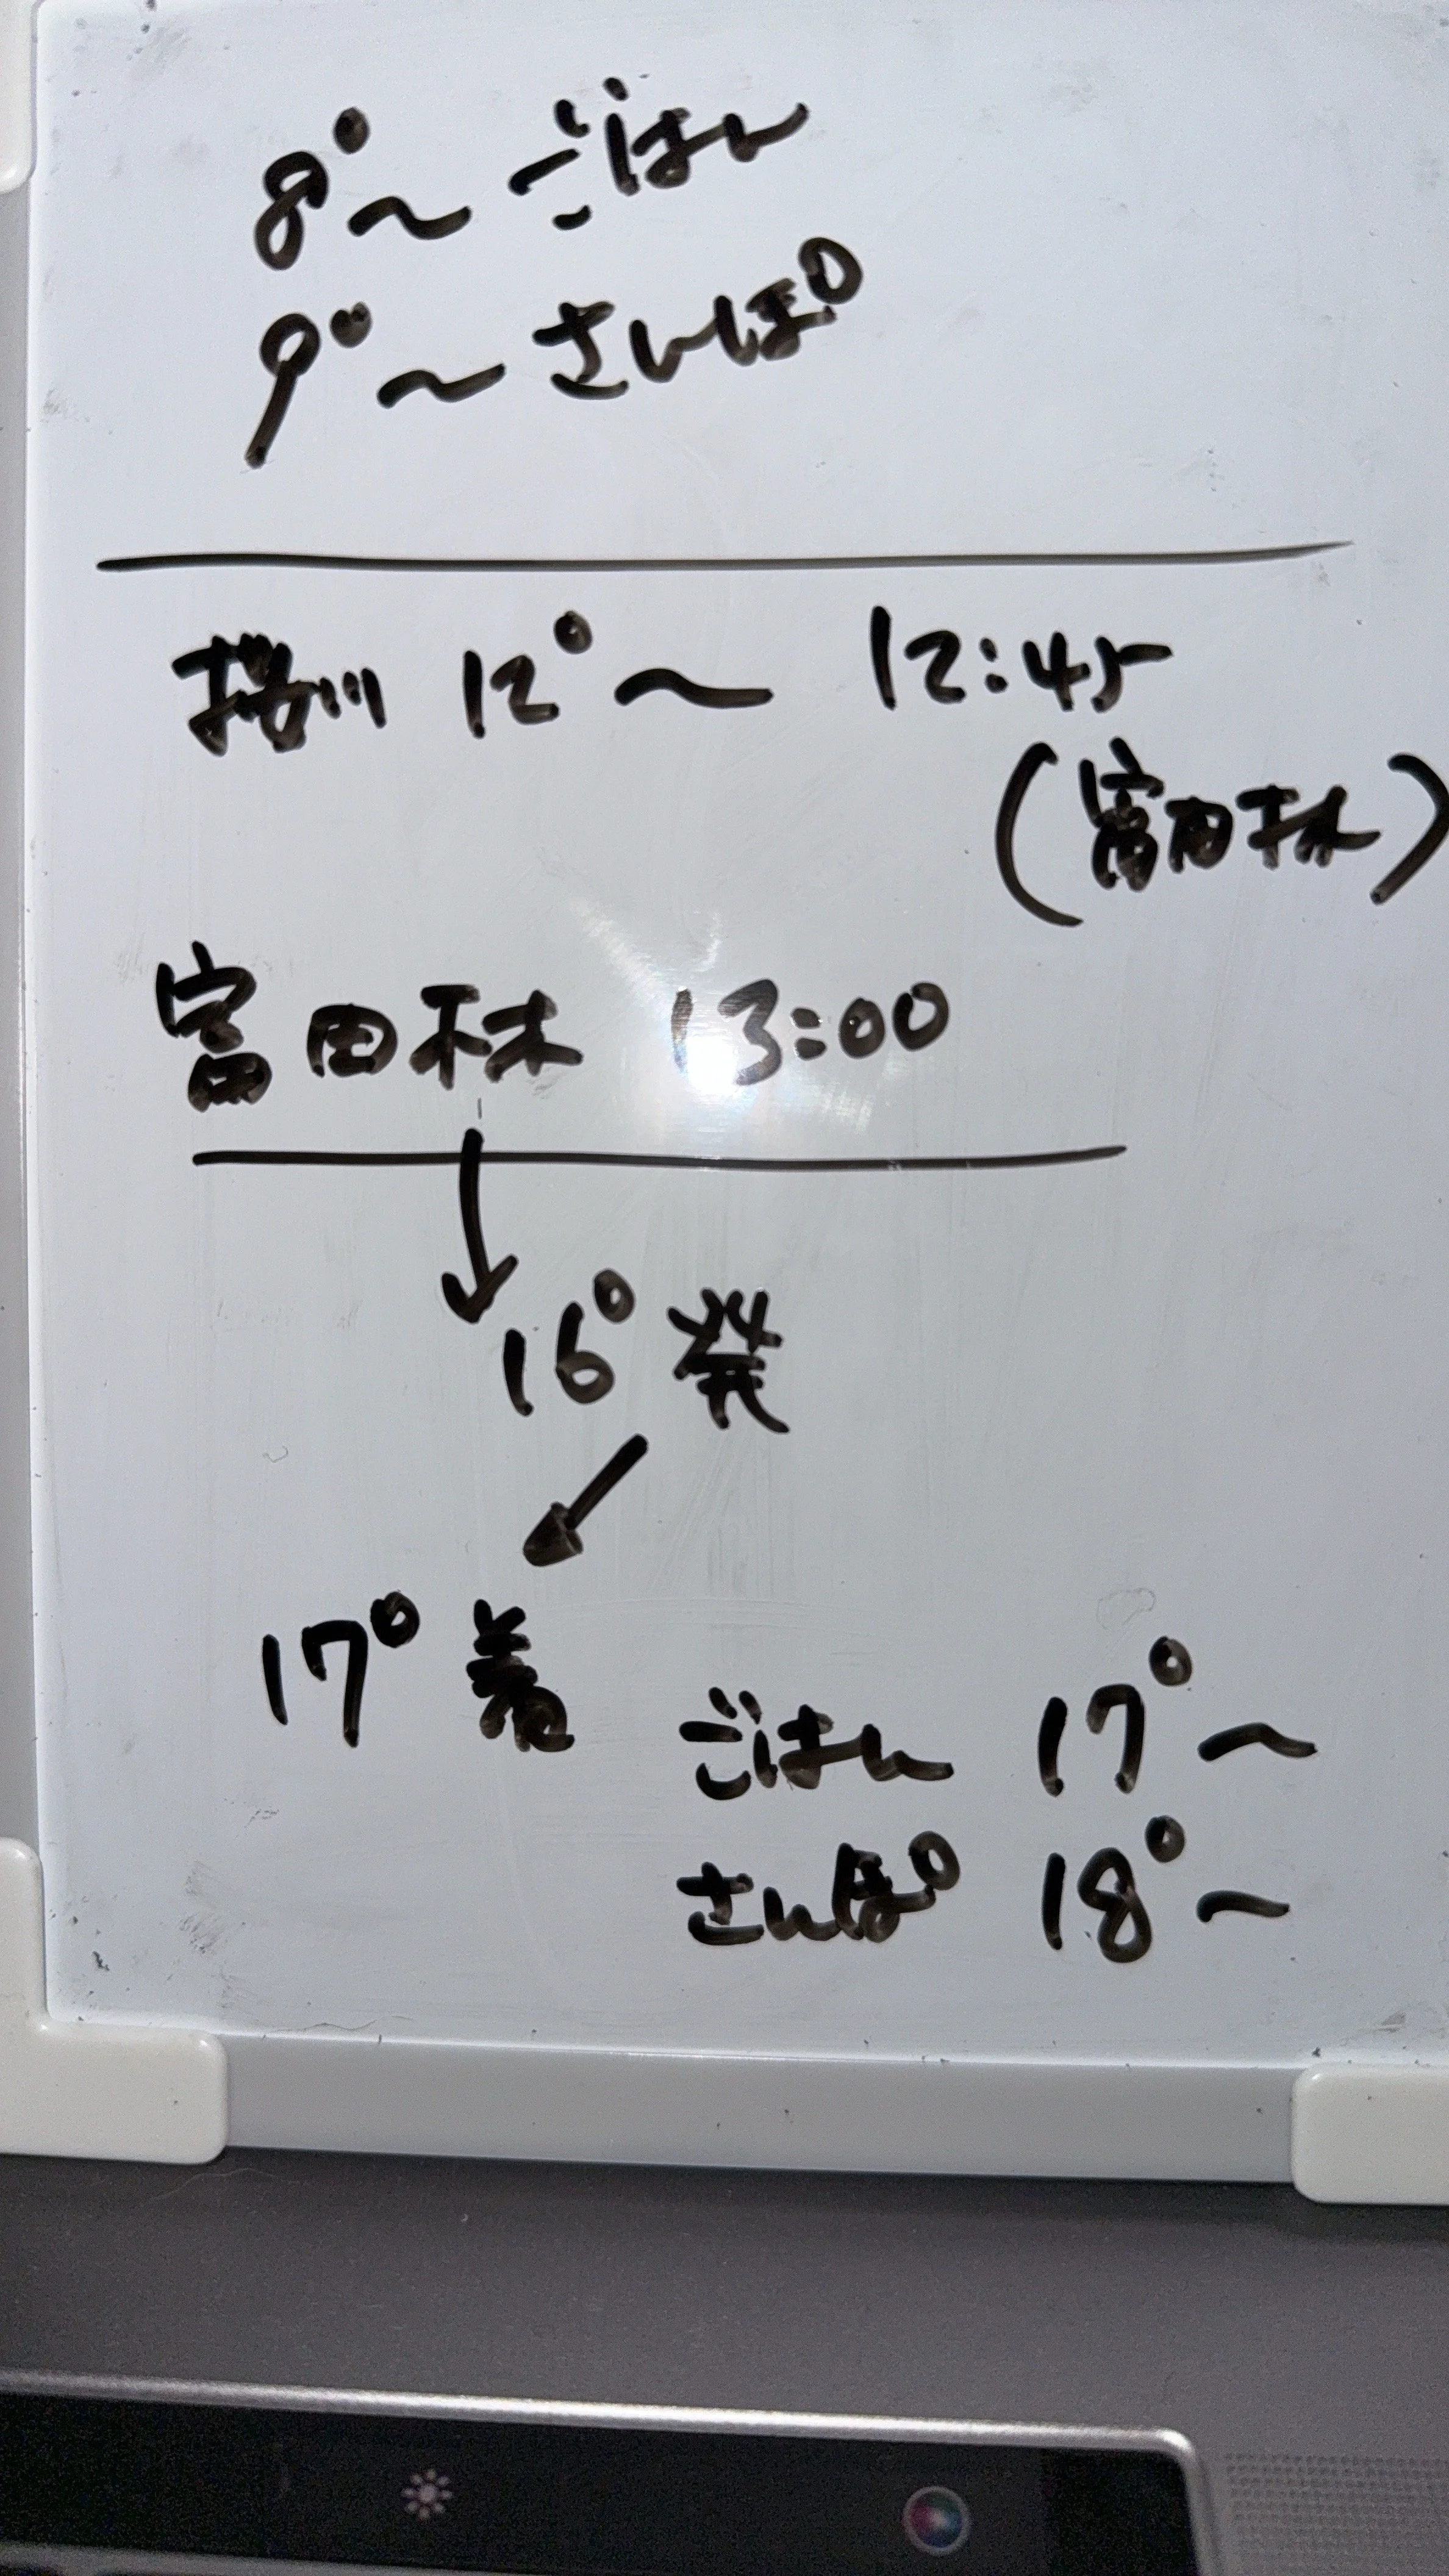 8°〜ごはん
9°〜さんぽ
桜川 12°〜 12:45
(富田林)
富田林 13:00
↓
16°発
↙
17°着
ごはん 17°〜
さんぽ 18°〜